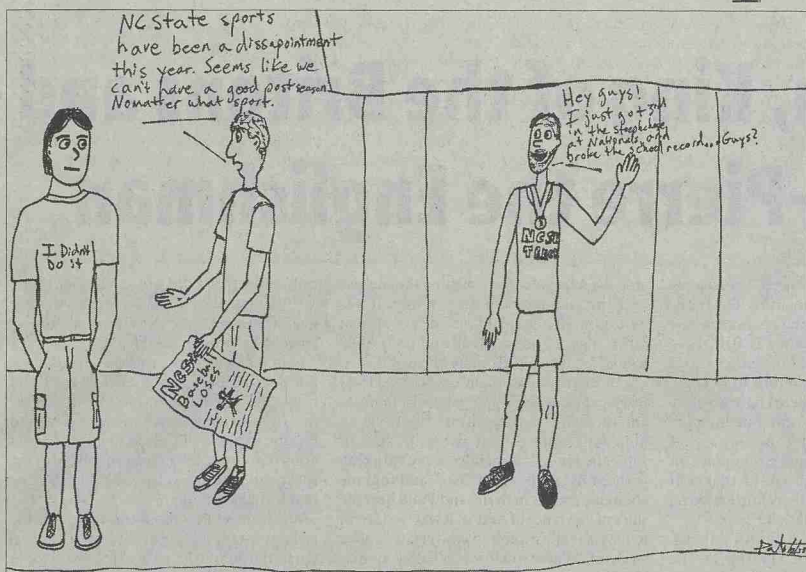 NC State sports
have been a dissapointment
this year. Seems like we
can't have a good postseason
No matter what sport.
Hey guys!
I just got 3rd
in the steeplechase
at Nationals, and
broke the school record... Guys?
I Didn't
Do It
NCSU
Baseball
Loses
NCSU
Track